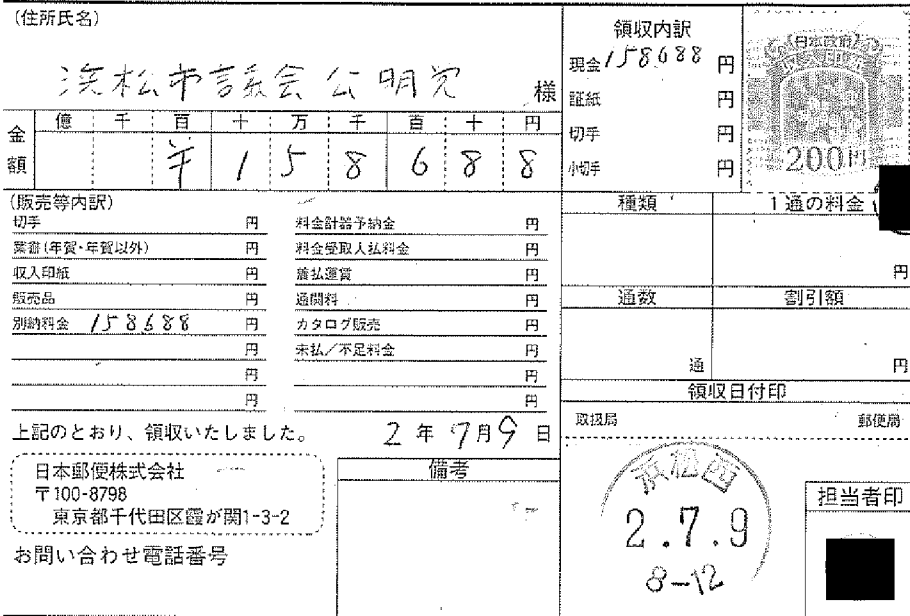 (住所氏名)
浜松市議会公明党 様
金額 億 千 百 十 万 千 百 十 円
¥158688
領収内訳
現金 158688 円
証紙 円
切手 円
小切手 円
日本政府
収入印紙
200円
(販売等内訳)
切手 円
葉書(年賀・年賀以外) 円
収入印紙 円
販売品 円
別納料金 158688 円
円
円
円
料金計器予納金 円
料金受取人払料金 円
着払運賃 円
通関料 円
カタログ販売 円
未払/不足料金 円
円
円
種類 1通の料金
円
通数 割引額
通 円
領収日付印
取扱局 郵便局
上記のとおり、領収いたしました。 2年7月9日
日本郵便株式会社
〒100-8798
東京都千代田区霞が関1-3-2
お問い合わせ電話番号
備考
浜松西
2.7.9
8-12
担当者印